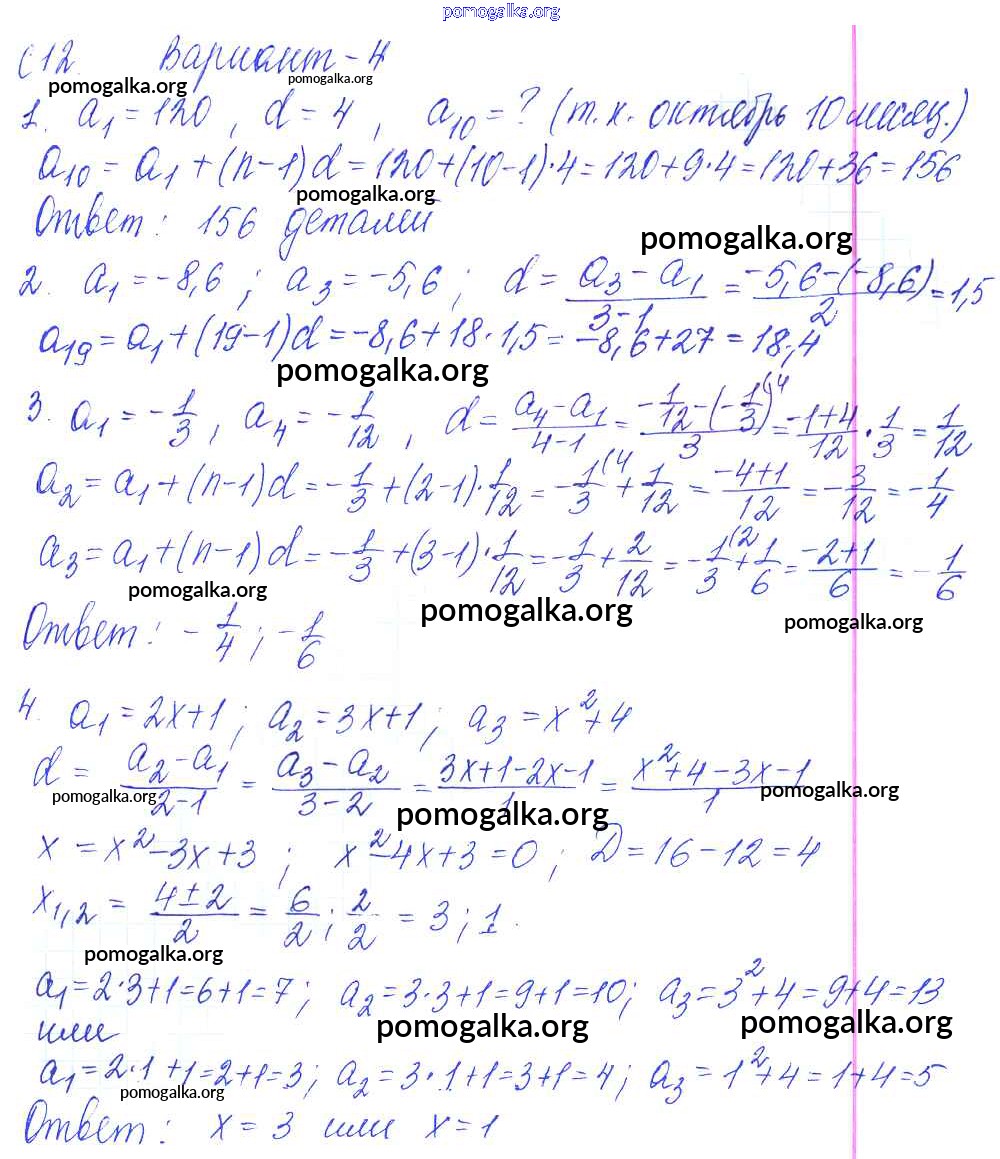 pomogalka.org
С12. Вариант-4
pomogalka.org pomogalka.org
1. a₁ = 120, d = 4, a₁₀ = ? (т.к. октябрь 10 месяц.)
a₁₀ = a₁ + (n-1)d = 120+(10-1)·4 = 120+9·4 = 120+36 = 156
pomogalka.org
Ответ: 156 деталей
pomogalka.org
2. a₁ = -8,6; a₃ = -5,6; d = (a₃ - a₁)/(3-1) = (-5,6-(-8,6))/2 = 1,5
a₁₉ = a₁ + (19-1)d = -8,6+18·1,5 = -8,6+27 = 18,4
pomogalka.org
3. a₁ = -1/3, a₄ = -1/12, d = (a₄-a₁)/(4-1) = (-1/12-(-1/3)⁽⁴)/3 = (-1+4)/12 · 1/3 = 1/12
a₂ = a₁ + (n-1)d = -1/3 + (2-1)·1/12 = -1/3⁽⁴ + 1/12 = (-4+1)/12 = -3/12 = -1/4
a₃ = a₁ + (n-1)d = -1/3 + (3-1)·1/12 = -1/3 + 2/12 = -1/3⁽² + 1/6 = (-2+1)/6 = -1/6
pomogalka.org pomogalka.org pomogalka.org
Ответ: -1/4; -1/6
4. a₁ = 2x+1; a₂ = 3x+1; a₃ = x²+4
d = (a₂-a₁)/(2-1) = (a₃-a₂)/(3-2) = (3x+1-2x-1)/1 = (x²+4-3x-1)/1
pomogalka.org pomogalka.org pomogalka.org
x = x²-3x+3; x²-4x+3 = 0; D = 16-12 = 4
x₁,₂ = (4±2)/2 = 6/2; 2/2 = 3; 1.
pomogalka.org
a₁ = 2·3+1 = 6+1 = 7; a₂ = 3·3+1 = 9+1 = 10; a₃ = 3²+4 = 9+4 = 13
или
pomogalka.org pomogalka.org
a₁ = 2·1+1 = 2+1 = 3; a₂ = 3·1+1 = 3+1 = 4; a₃ = 1²+4 = 1+4 = 5
pomogalka.org pomogalka.org
Ответ: x = 3 или x = 1